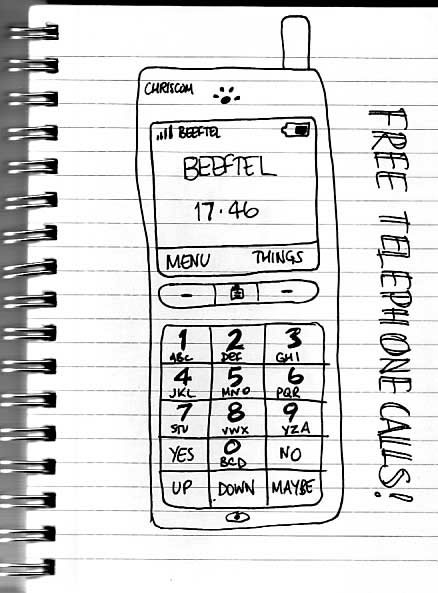 CHRISCOM
BEEFTEL
BEEFTEL
17·46
MENU THINGS
1 2 3
ABC DEF GHI
4 5 6
JKL MNO PQR
7 8 9
STU VWX YZA
YES 0 NO
BCD
UP DOWN MAYBE
FREE TELEPHONE CALLS!